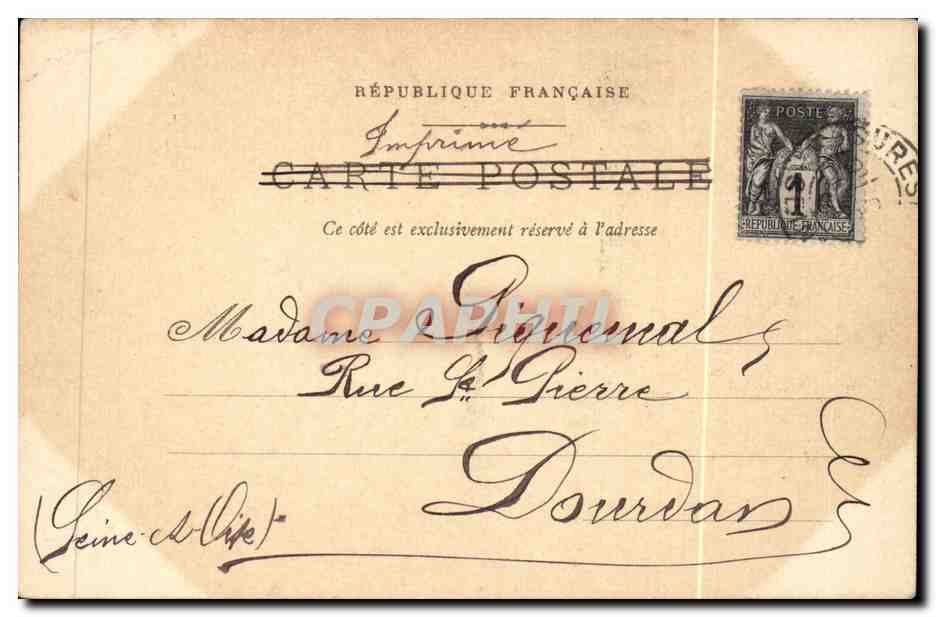 RÉPUBLIQUE FRANÇAISE
Imprimé
CARTE POSTALE
Ce côté est exclusivement réservé à l'adresse
POSTE
1
RÉPUBLIQUE FRANÇAISE
CPAPHIL
Madame Piquemal
Rue St Pierre
Dourdan
(Seine-et-Oise)